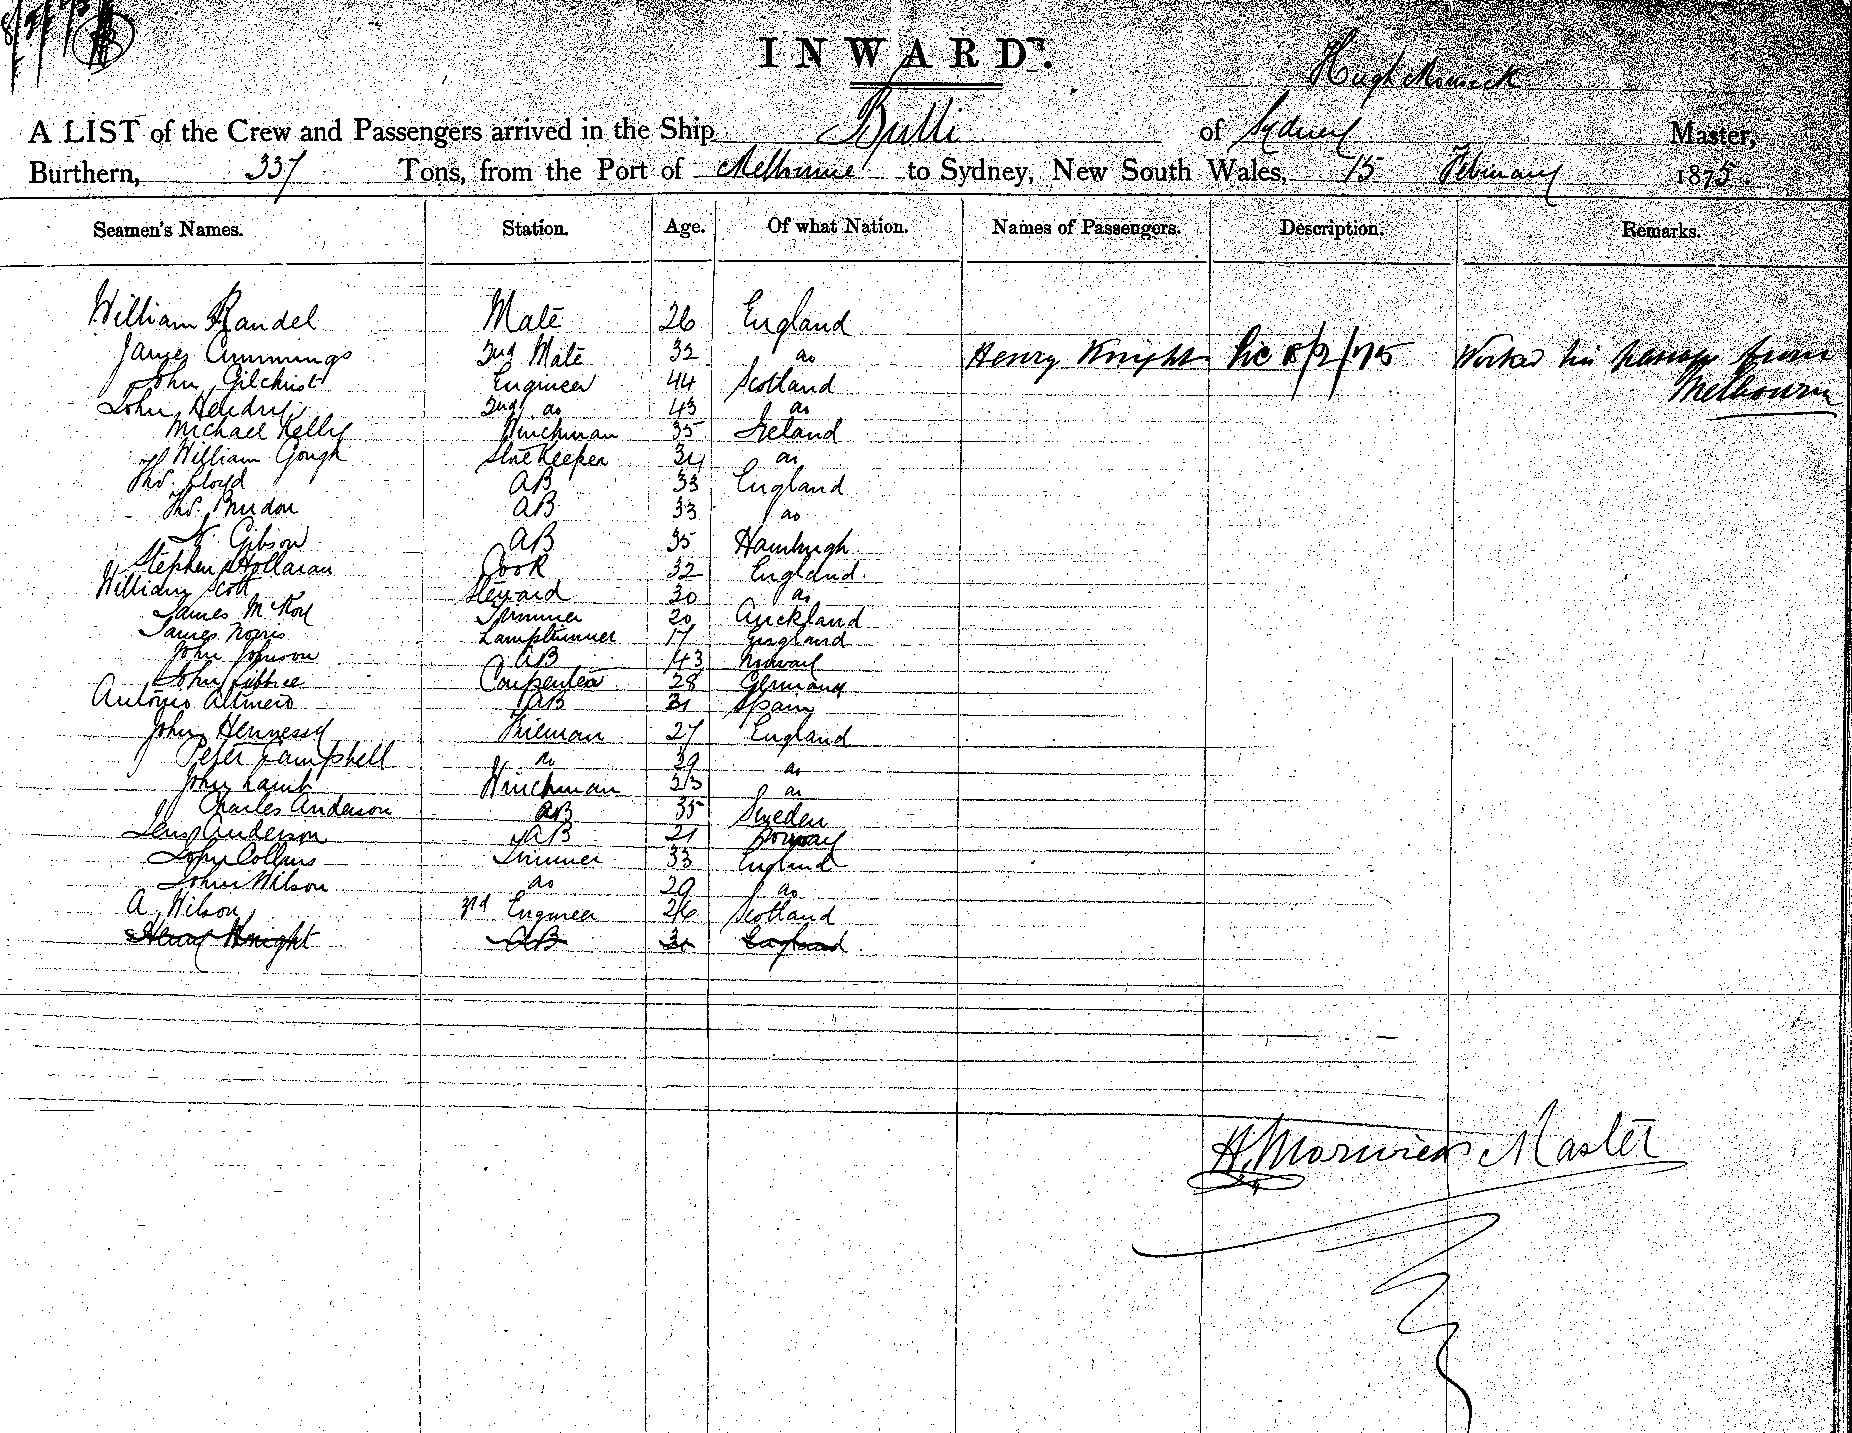 INWARD.
Hugh Morwick
A LIST of the Crew and Passengers arrived in the Ship Bulli of Sydney Master,
Burthern, 337 Tons, from the Port of Melbourne to Sydney, New South Wales, 15 February 1875
Seamen's Names. Station. Age. Of what Nation. Names of Passengers. Description. Remarks.
William Randel Mate 26 England
James Cummings 2nd Mate 32 do Henry Knight 8/2/75 Worked his passage from
John Gilchrist Engineer 44 Scotland Melbourne
John Hendry 2nd do 43 do
Michael Kelly Winchman 35 Ireland
William Gough Storekeeper 34 do
Thos. Lloyd AB 33 England
Thos. AB 33 do
Gibson AB 35 Hamburgh
Stephen Hollaran Cook 32 England
William Scott Steward 30 do
James McKoy Trimmer 20 Auckland
James Norris Lamptrimmer 17 England
John Johnson AB 43 Norway
John Carpenter 28 Germany
Antonio AB 31 Spain
John Hennessy Fireman 27 England
Peter Campbell do 39 do
John Lamb Winchman 23 do
Charles Anderson AB 35 Sweden
Jens Anderson AB 21 Norway
John Collins Trimmer 33 England
John Wilson do 29 do
A. Wilson 3rd Engineer 26 Scotland
Henry Knight AB 30 England
H. Morwick Master